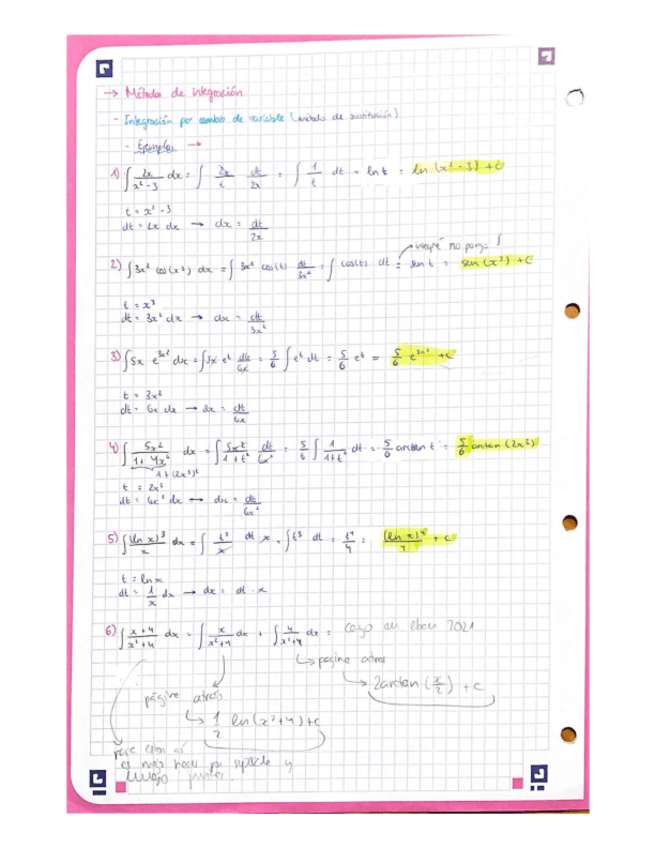 → Método de integración
- Integración por cambio de variable (método de sustitución)
- Ejemplos →
1) ∫ 2x/(x² - 3) dx = ∫ 2x/t dt/2x = ∫ 1/t dt = ln t = ln (x² - 3) + C
t = x² - 3
dt = 2x dx → dx = dt/2x
integré no pongo ∫
2) ∫ 3x² cos(x³) dx = ∫ 3x² cos(t) dt/3x² = ∫ cos(t) dt = sen t = sen (x³) + C
t = x³
dt = 3x² dx → dx = dt/3x²
3) ∫ 5x e^(3x²) dx = ∫ 5x e^t dt/6x = 5/6 ∫ e^t dt = 5/6 e^t = 5/6 e^(3x²) + C
t = 3x²
dt = 6x dx → dx = dt/6x
4) ∫ 5x²/(1 + 4x⁶) dx = ∫ 5x²/(1 + t²) dt/6x² = 5/6 ∫ 1/(1+t²) dt = 5/6 arctan t = 5/6 arctan (2x³)
1 + (2x³)²
t = 2x³
dt = 6x² dx → dx = dt/6x²
5) ∫ (ln x)³/x dx = ∫ t³/x dt x = ∫ t³ dt = t⁴/4 = (ln x)⁴/4 + C
t = ln x
dt = 1/x dx → dx = dt · x
6) ∫ (x + 4)/(x² + 4) dx = ∫ x/(x²+4) dx + ∫ 4/(x²+4) dx = cayo en 2021
↳ pagina atras
↳ 2arctan (x/2) + c
página atras
↳ 1/2 ln (x² + 4) + c
es por y